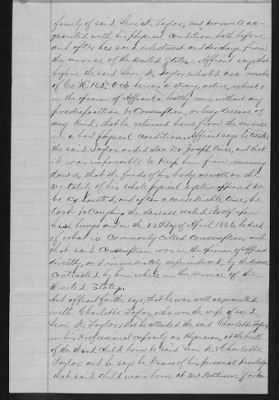 family of said Levi K. Taylor, and was well ac-
quainted with his physical condition both before
and after his said enlistment and discharge from
the service of the United States. Affiant says that
before the said Levi K. Taylor enlisted as a member
of Co. K. 162, O he was a strong, active, robust &
in the opinion of Affiant a healthy man, without any
predisposition to Consumption, or lung disease of
any kind; that he returned home from the service
in a bad physical condition. Affiant says he treated
the said Taylor and so did Dr Joseph and that
it was impossible to keep him from running
down & that the fluids of his body as well as the
vitality of his whole physical system appeared to
be exhausted, and after a considerable time, he
took to Coughing the disease seated itself upon
his lungs and on the 23 day of April 1866 he died
of what is Commonly called Consumption, and
that said Consumption was in the opinion of affiant
directly, and immediately superinduced by the disease
Contracted by him while in the service of the
United States.
And affiant further says that he was well acquainted
with Charlotte Taylor who was the wife of said
Levi K. Taylor, that he attended the said Charlotte Taylor
in his professional capacity as Physician, at the birth
of the third child born to said Levi K. & Charlotte
Taylor, and he says he knows of his personal knowledge
that said child was born at